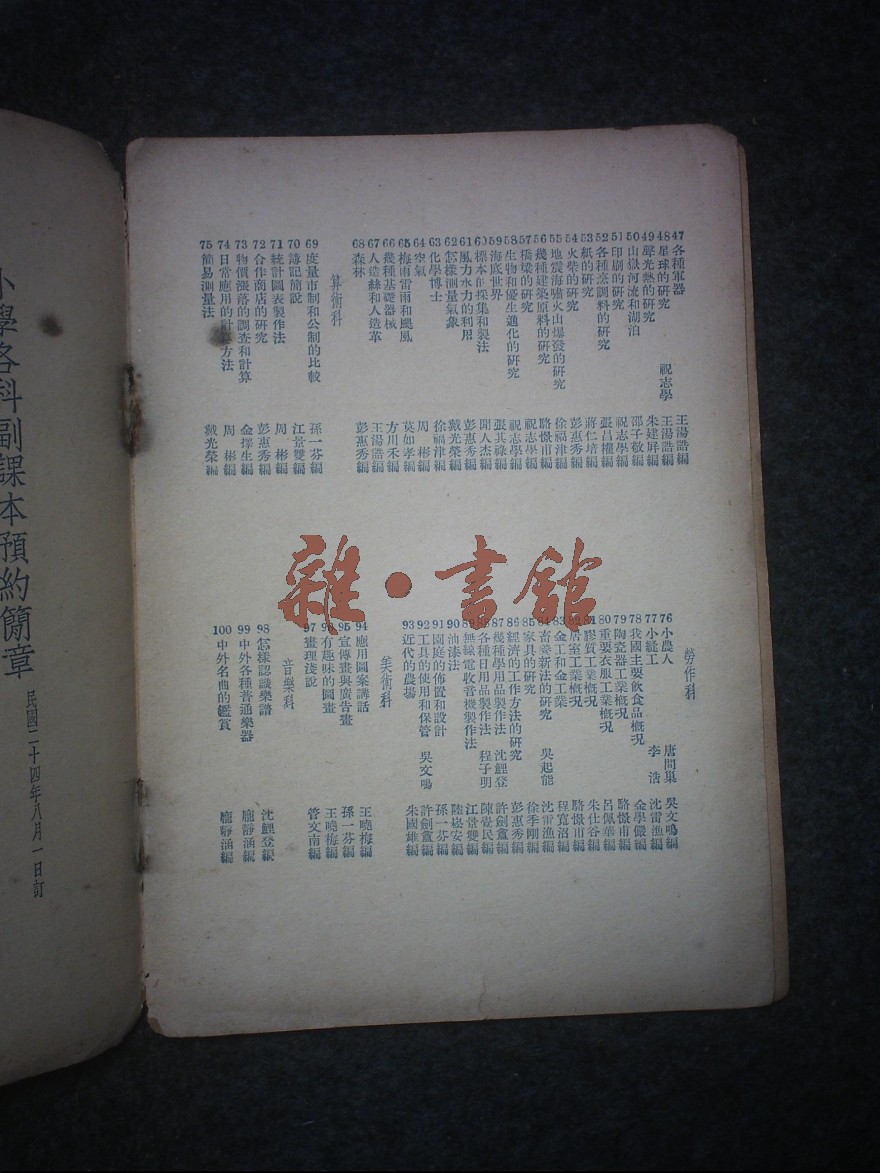 47 各種軍器 王湯誥編
48 星球的研究 祝志學 王湯誥編
49 聲光熱的研究 朱建屏編
50 山嶽河流和湖泊 邵子敬編
51 印刷的研究 祝志學編
52 各種烹調料的研究 張昌權編
53 紙的研究 蔣仁培編
54 火柴的研究 彭惠秀編
55 地震海嘯火山爆發的研究 徐福津編
56 幾種建築原料的研究 駱憬甫編
57 橋樑的研究 祝志學編
58 生物和優生進化的研究 祝志學編
59 海底世界 張其祿編
60 標本的採集和製法 聞人杰編
61 風力水力的利用 彭惠秀編
62 怎樣測量氣象 戴光榮編
63 化學博士 徐福津編
64 空氣 周彬編
65 梅雨雷雨和颶風 莫如孝編
66 幾種基礎器械 方川禾編
67 人造絲和人造革 王湯誥編
68 森林 彭惠秀編
算術科
69 度量市制和公制的比較 孫一芬編
70 簿記簡說 江景雙編
71 統計圖表製作法 周彬編
72 合作商店的研究 彭惠秀編
73 物價漲落的調查和計算 金擇生編
74 日常應用的計算方法 周彬編
75 簡易測量法 戴光榮編
勞作科
76 小農人 唐問集 吳文鳴編
77 小縫工 李浩 沈雷漁編
78 我國主要飲食品概況 金學儼編
79 陶瓷器工業概況 駱憬甫編
80 重要衣服工業概況 呂佩華編
81 膠質工業概況 朱仕谷編
82 居室工業概況 駱憬甫編
83 金工和金工業 程寬沼編
84 畜養新法的研究 吳起能 沈雷漁編
85 家具的研究 徐季剛編
86 經濟的工作方法的研究 彭惠秀編
87 幾種學用品製作法 沈鯉登 許劍盦編
88 各種日用品製作法 程子明 陳耄民編
89 無線電收音機製作法 江景雙編
90 油漆法 陸崧安編
91 園庭的佈置和設計 孫一芬編
92 工具的使用和保管 吳文鳴 許劍盦編
93 近代的農場 朱國雄編
美術科
94 應用圖案講話 王曉梅編
95 宣傳畫與廣告畫 孫一芬編
96 有趣味的圖畫 王曉梅編
97 畫理淺說 管文南編
音樂科
98 怎樣認識樂譜 沈鯉登編
99 中外各種普通樂器 龐靜涵編
100 中外名曲的鑑賞 龐靜涵編
小學各科副課本預約簡章
民國二十四年八月一日訂
雜·書館